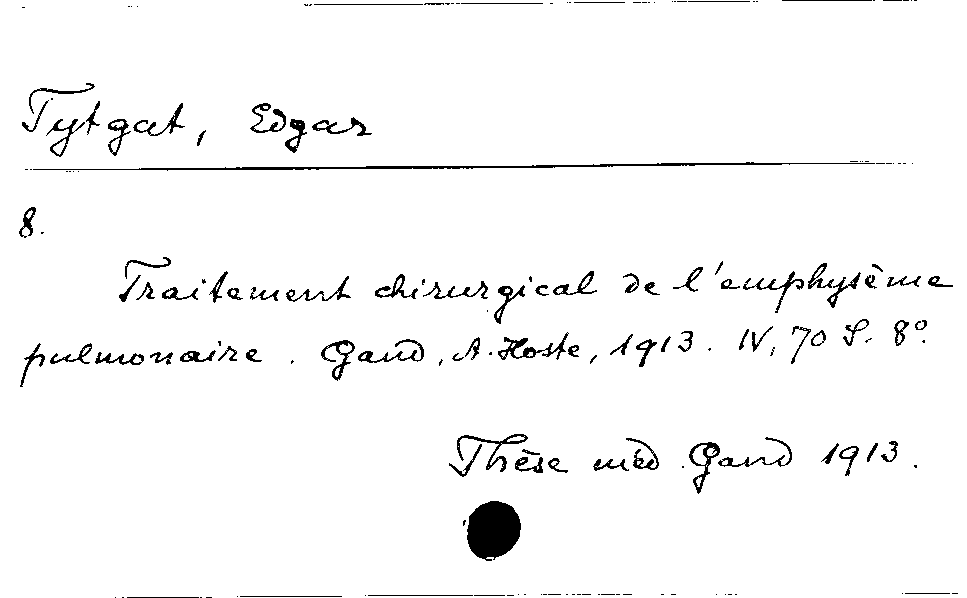 Tytgat, Edgar
8.
Traitement chirurgical de l'emphysème
pulmonaire. Gand, A. Hoste, 1913. IV, 70 S. 8°.
Thèse méd Gand 1913.